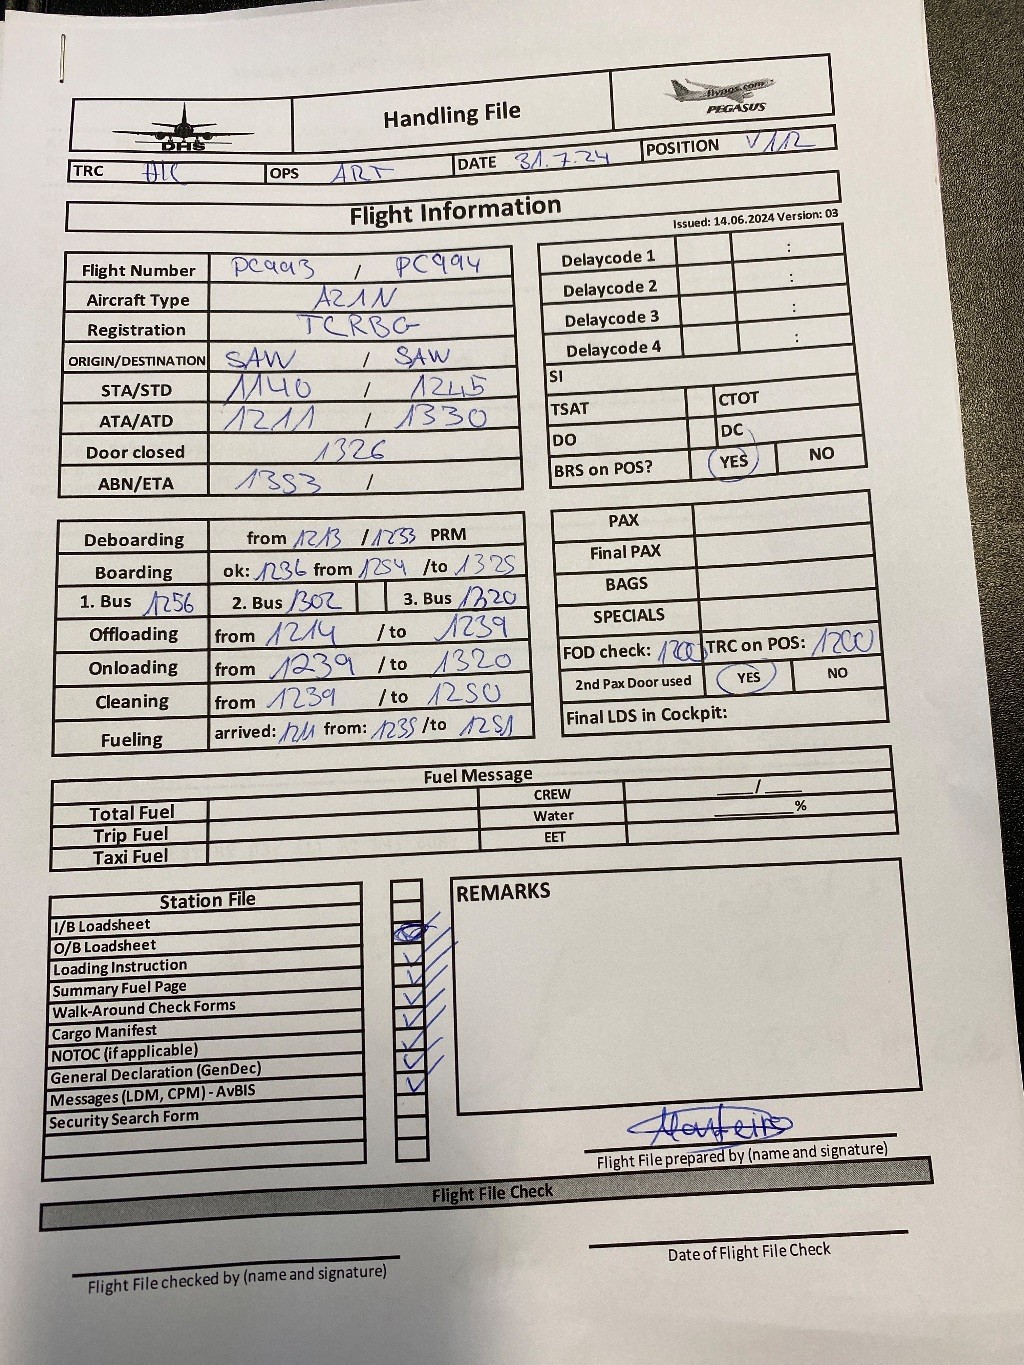 DHS
Handling File
flypgs.com
PEGASUS
TRC OPS ART DATE 31.7.24 POSITION V112
Flight Information
Issued: 14.06.2024 Version: 03
Flight Number PC993 / PC994
Aircraft Type A21N
Registration TCRBG
ORIGIN/DESTINATION SAW / SAW
STA/STD 1140 / 1245
ATA/ATD 1211 / 1330
Door closed 1326
ABN/ETA 1353 /
Delaycode 1 :
Delaycode 2 :
Delaycode 3 :
Delaycode 4 :
SI
TSAT CTOT
DO DC
BRS on POS? YES NO
Deboarding from 1213 /1233 PRM
Boarding ok: 1236 from 1254 /to 1325
1. Bus 1256 2. Bus 1302 3. Bus 1320
Offloading from 1214 /to 1239
Onloading from 1239 /to 1320
Cleaning from 1239 /to 1250
Fueling arrived: 1211 from: 1235 /to 1251
PAX
Final PAX
BAGS
SPECIALS
FOD check: 1200 TRC on POS: 1200
2nd Pax Door used YES NO
Final LDS in Cockpit:
Fuel Message
Total Fuel CREW ___/___
Trip Fuel Water ______%
Taxi Fuel EET
Station File
I/B Loadsheet
O/B Loadsheet
Loading Instruction
Summary Fuel Page
Walk-Around Check Forms
Cargo Manifest
NOTOC (if applicable)
General Declaration (GenDec)
Messages (LDM, CPM) - AvBIS
Security Search Form
REMARKS
Flight File prepared by (name and signature)
Flight File Check
Flight File checked by (name and signature)
Date of Flight File Check